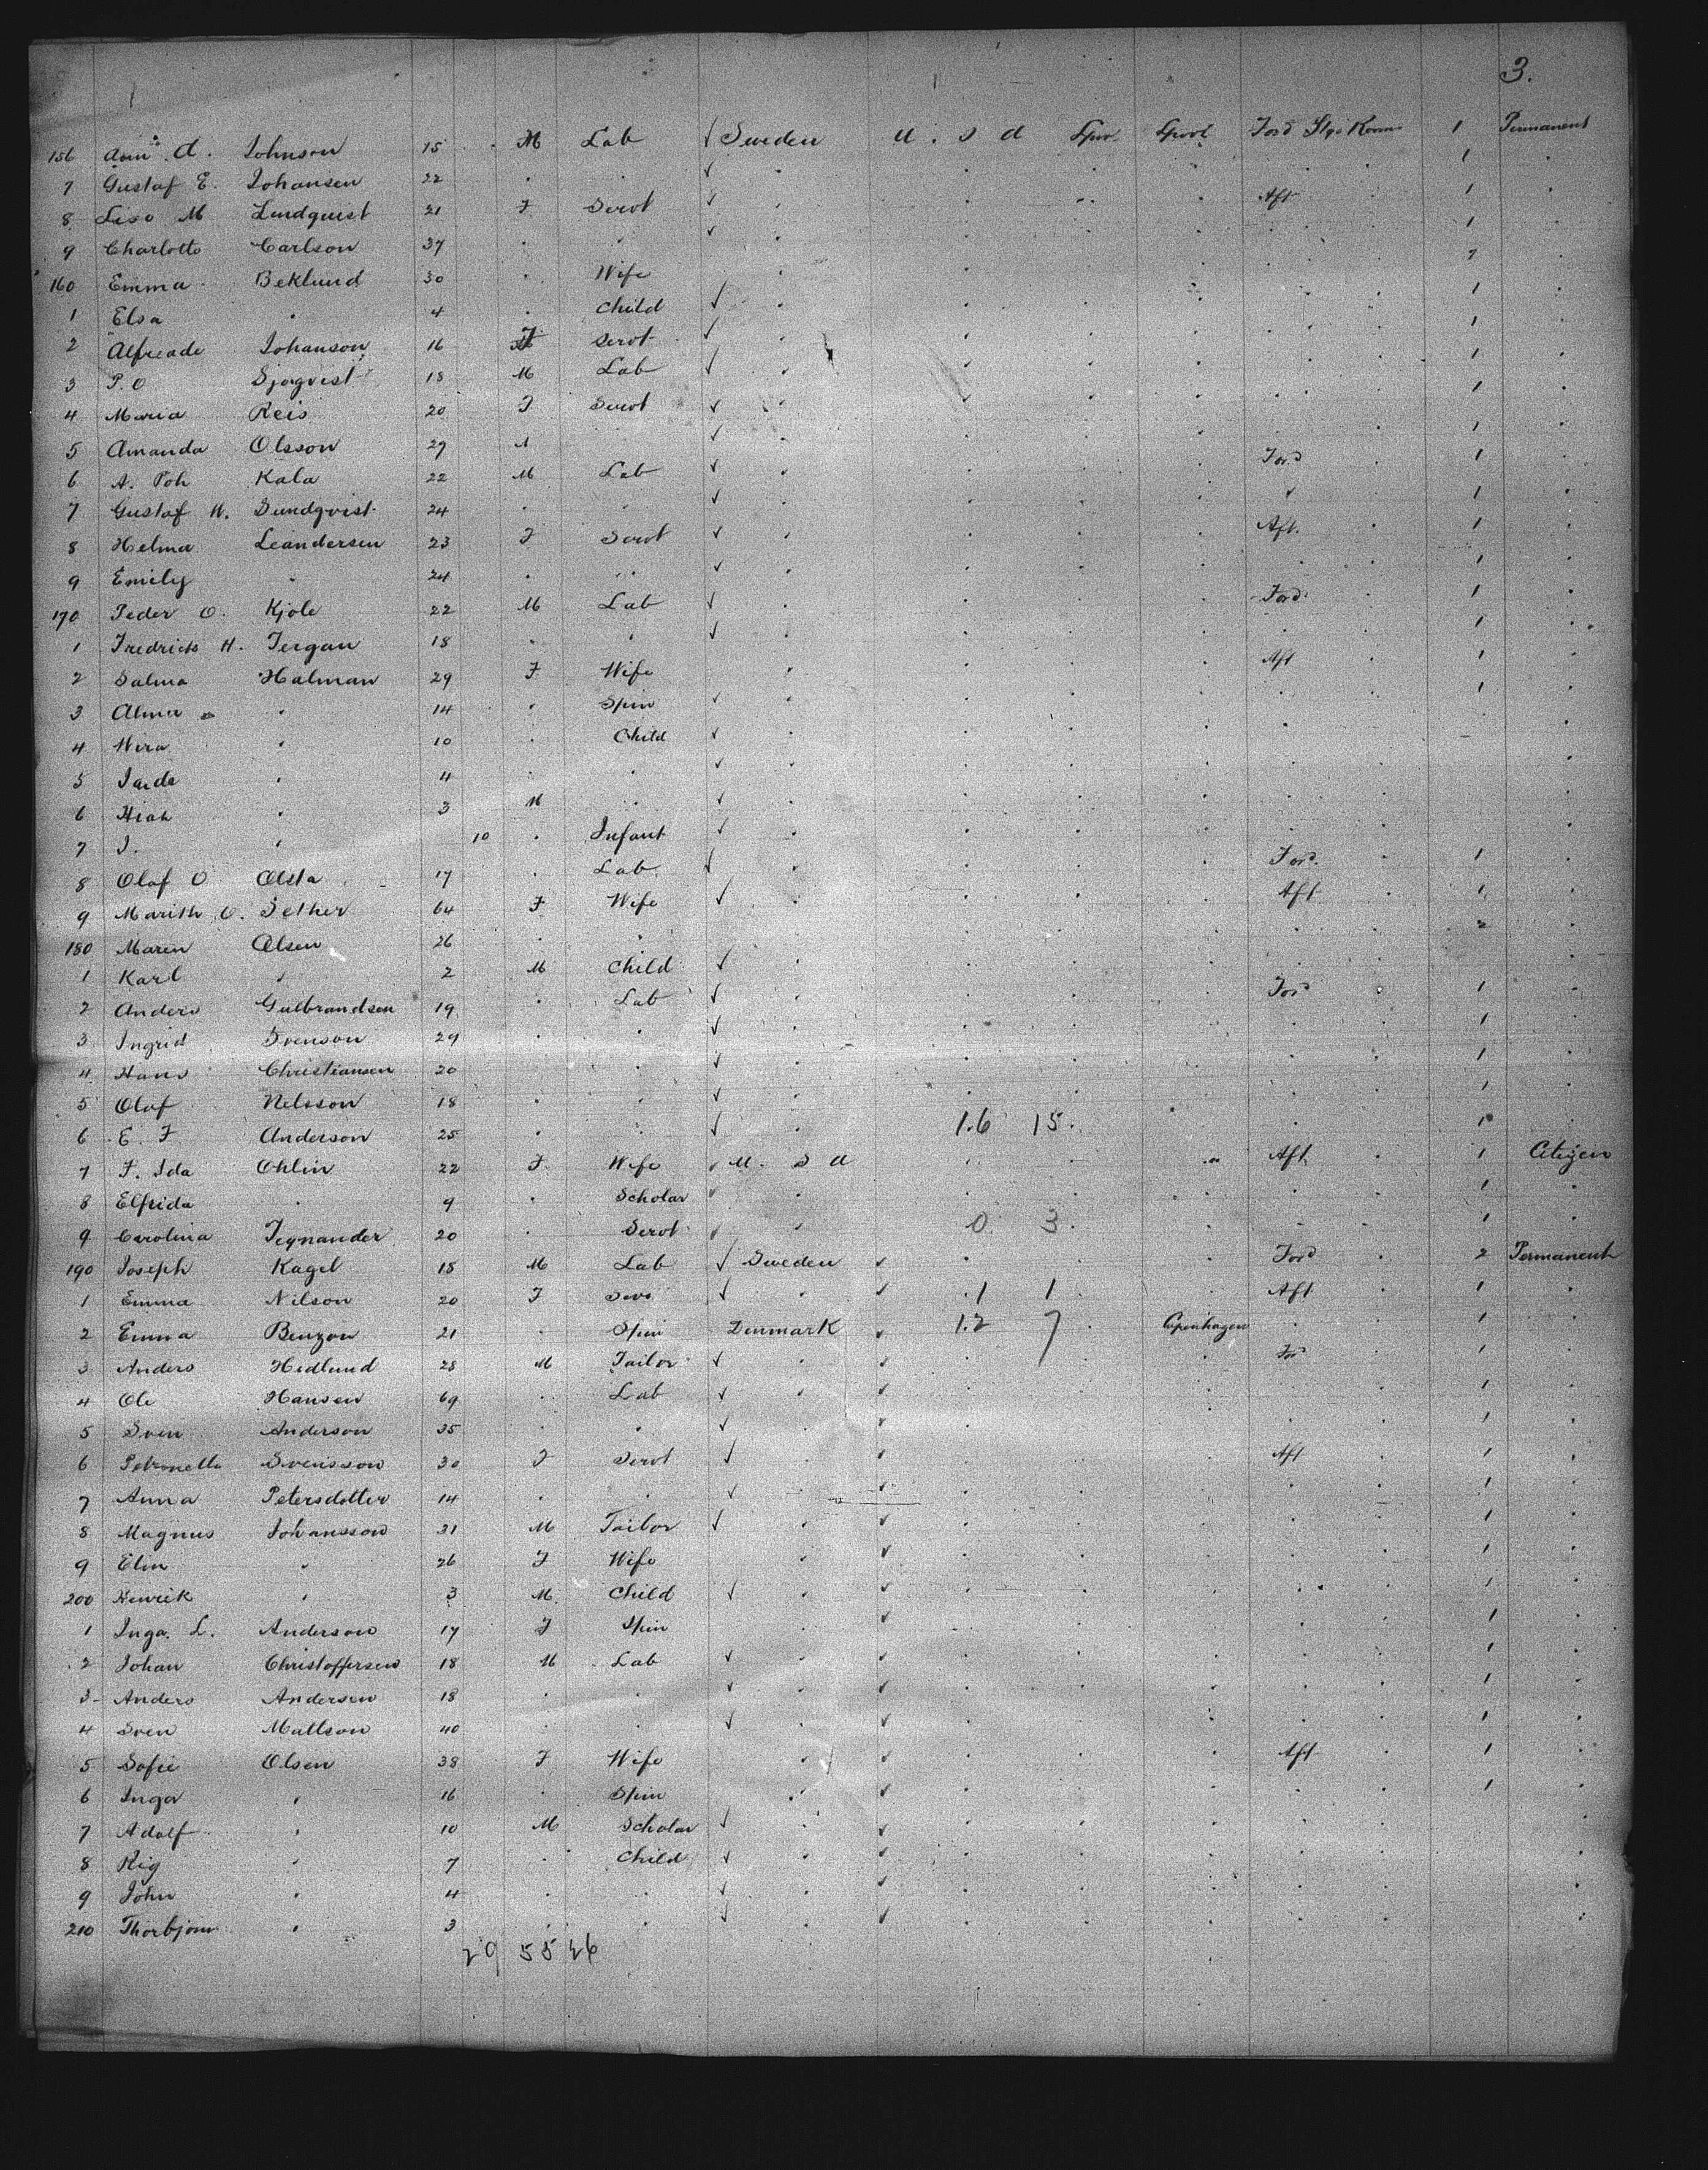 3.
156 A. Johnson 15 M Lab Sweden U. S A Lpool Ford Permanent
7 Gustaf E. Johansen 22 " " " 1
8 Lisa M Lindquist 21 F Servt " Aft 1
9 Charlotte Carlson 37 " " " 1
160 Emma Beklund 30 " Wife "
1 Elsa " 4 " Child " 1
2 Alfreade Johanson 16 F Servt " 1
3 P. O Sjoqvist 18 M Lab " 1
4 Maria Reis 20 F Servt " 1
5 Amanda Olsson 29 " " 1
6 A. Poh Kala 22 M Lab " Ford 1
7 Gustaf W. Sundqvist 24 " " " 1
8 Helma Leandersen 23 F Servt " Aft. 1
9 Emily " 24 " " " 1
170 Peder O. Kjole 22 M Lab " Ford 1
1 Fredrick H. Tergan 18 " " " 1
2 Salma Halman 29 F Wife " Aft 1
3 Alma " 14 " Spin " 1
4 Wira " 10 " Child "
5 " 4 " " "
6 " 3 M " "
7 J. " 10 " Infant "
8 Olaf O Olsta 17 " Lab " Ford. 1
9 Marith O. Sether 64 F Wife " Aft 1
180 Maren Olsen 26 " " " 2
1 Karl " 2 M Child "
2 Anders Gulbrandsen 19 " Lab " Ford 1
3 Ingrid Svenson 29 " " " 1
4 Hans Christiansen 20 " " " 1
5 Olof Nelsson 18 " " " 1
6 E. F Anderson 25 " " " 16 15. 1
7 F. Ida Ohlin 22 F. Wife U. S A " Aft 1 Citizen
8 Elfrida " 9 " Scholar " 1
9 Carolina Tegnander 20 " Servt " 0 3 1
190 Joseph Kagel 18 M Lab Sweden " Ford 2 Permanent
1 Emma Nilson 20 F Serv " 1 1 Aft 1
2 Emma Benzon 21 " Spin Denmark 12 7 Copenhagen " 1
3 Anders Hedlund 28 M Tailor " For 1
4 Ole Hansen 69 " Lab " 1
5 Sven Anderson 35 " " " 1
6 Petronella Svensson 30 F Servt " Aft 1
7 Anna Petersdotter 14 " " " 1
8 Magnus Johansson 31 M Tailor " 1
9 Elin " 26 F Wife " 1
200 Henrik " 3 M. Child " 1
1 Inga. L. Anderson 17 F Spin " 1
2 Johan Christoffersen 18 M Lab " 1
3 Anders Andersen 18 " " " 1
4 Sven Mattson 40 " " " 1
5 Sofie Olsen 38 F Wife " Aft 1
6 Inga " 16 " Spin " 1
7 Adolf " 10 M Scholar "
8 Rig " 7 " Child "
9 John " 4 " " "
210 Thorbjorn " 3 " " "
29 55 26